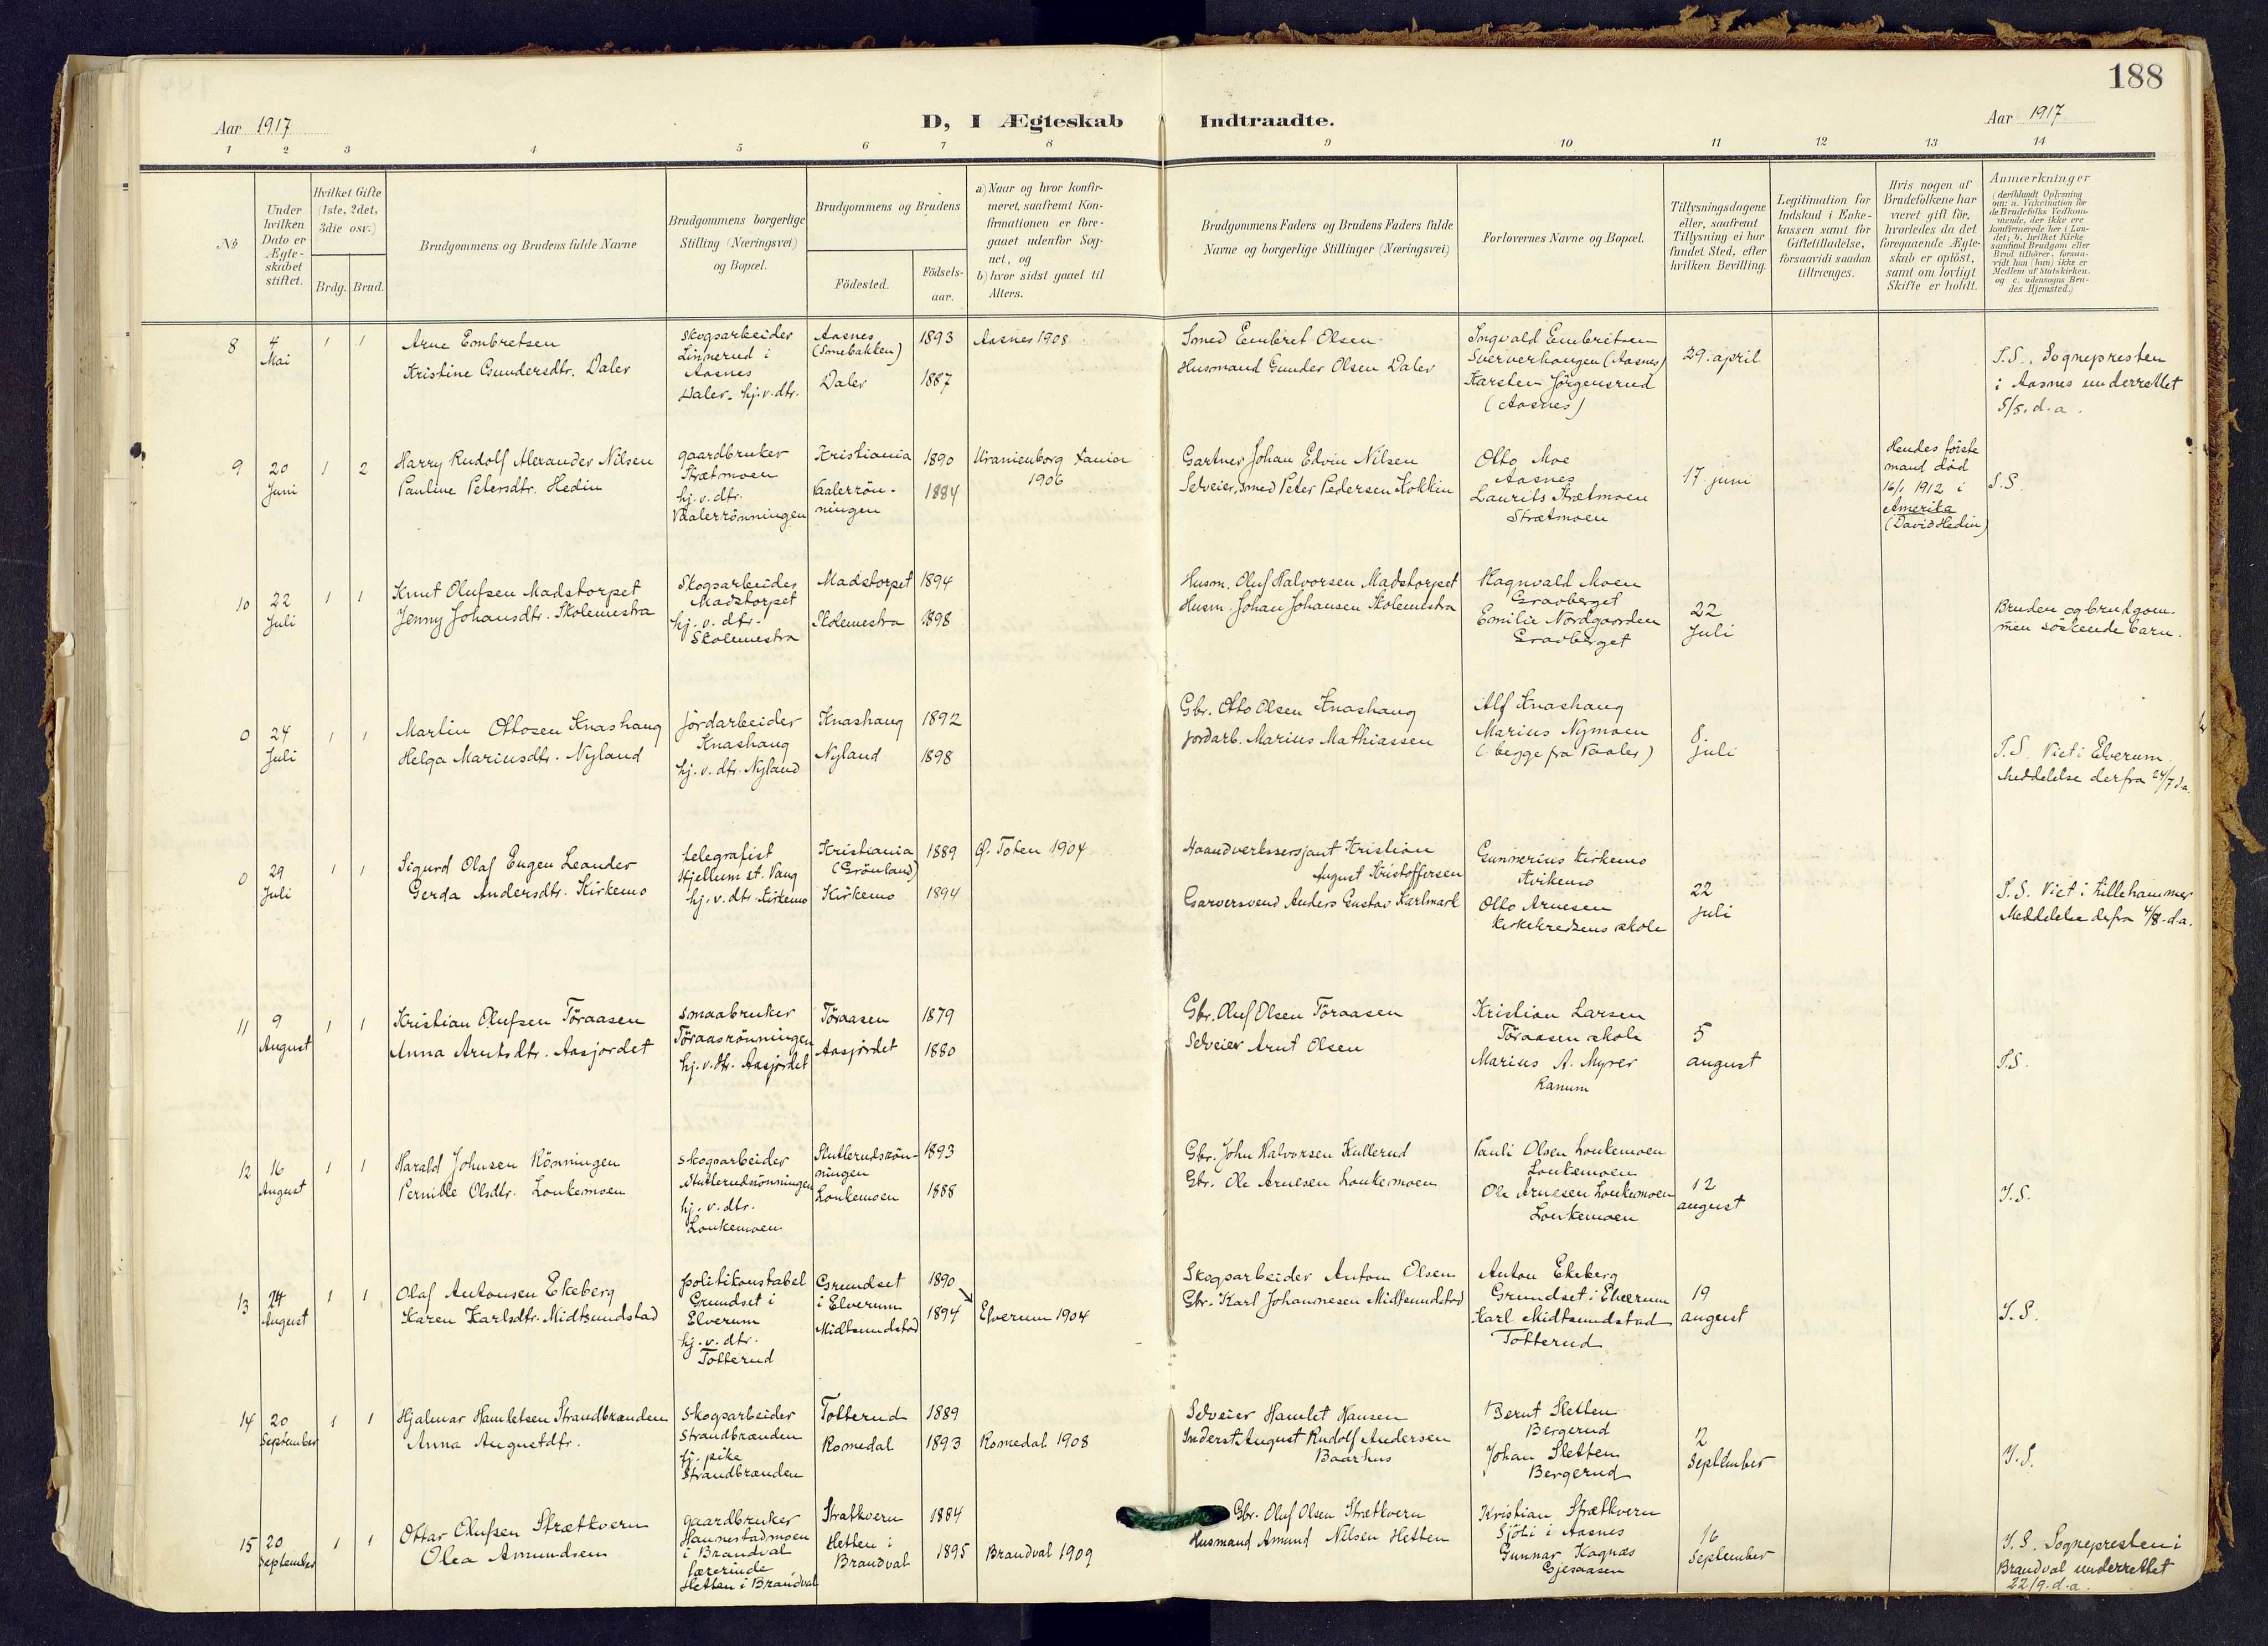 188
Aar 1917
D, I Ægteskab Indtraadte.
Aar 1917
1 2 3 4 5 6 7 8 9 10 11 12 13 14
No
Under hvilken Dato er Ægteskabet stiftet.
Hvilket Gifte (1ste, 2det, 3die osv.)
Brdg. Brud.
Brudgommens og Brudens fulde Navne
Brudgommens borgerlige Stilling (Næringsvei) og Bopæl.
Brudgommens og Brudens
Födested.
Födselsaar.
a) Naar og hvor konfirmeret, saafremt Konfirmationen er foregaaet udenfor Sognet, og
b) hvor sidst gaaet til Alters.
Brudgommens Faders og Brudens Faders fulde Navne og borgerlige Stillinger (Næringsvei)
Forlovernes Navne og Bopæl.
Tillysningsdagene eller, saafremt Tillysning ei har fundet Sted, efter hvilken Bevilling.
Legitimation for Indskud i Enkekassen samt for Giftetilladelse, forsaavidt saadan tiltrænges.
Hvis nogen af Brudefolkene har været gift för, hvorledes da det foregaaende Ægteskab er oplöst, samt om lovligt Skifte er holdt.
Anmærkninger
(deriblandt Oplysning om: a. Vakcination for de Brudefolks Vedkommende, der ikke ere konfirmerede her i Landet; b. hvilket Kirkesamfund Brudgom eller Brud tilhörer, forsaavidt han (hun) ikke er Medlem af Statskirken, og c. udensogns Brudes Hjemsted.)
8
4 Mai
1 1
Arne Embretsen
Kristine Gundersdtr. Daler
skogsarbeider
Linnerud i
Aasnes
Daler. hj.v.dtr.
Aasnes
(Smebakken)
Daler
1893
1887
Aasnes 1908
Smed Embret Olsen
Husmand Gunder Olsen Daler
Ingvald Embretsen
(Aasnes)
Karsten Jörgensrud
(Aasnes)
29. april
S.S. Sognepresten
i Aasnes underrettet
5/5. d.a.
9
20 Juni
1 2
Harry Rudolf Alexander Nilsen
Pauline Petersdtr. Hedin
gaardbruker
Strætmoen
hj.v.dtr.
Vaalerrönningen
Kristiania
Vaalerrönningen
1890
1884
Uranienborg Xania
1906
Gartner Johan Edvin Nilsen
Selveier, smed Peter Pedersen Kokkin
Otto Moe
Aasnes
Laurits Strætmoen
Strætmoen
17 juni
Hendes förste
mand död
16/1 1912 i
Amerika
(David Hedin)
S.S.
10
22 Juli
1 1
Knut Olufsen Madstorpet
Jenny Johansdtr. Skolemestra
Skogsarbeider
Madstorpet
hj.v.dtr.
Skolemestra
Madstorpet
Skolemestra
1894
1898
Husm. Oluf Halvorsen Madstorpet
Husm. Johan Johansen Skolemestra
Ragnvald Moen
Gravberget
Emilie Nordgaarden
Gravberget
22
Juli
Bruden og brudgommen söskendebarn.
0
24 Juli
1 1
Martin Ottosen Knashaug
Helga Mariusdtr. Nyland
jordarbeider
Knashaug
hj.v.dtr. Nyland
Knashaug
Nyland
1892
1898
Gbr. Otto Olsen Knashaug
jordarb. Marius Mathiassen
Alf Knashaug
Marius Nymoen
(begge fra Vaaler)
8
juli
S.S. Viet i Elverum.
Meddelelse derfra 24/7 d.a.
0
29 Juli
1 1
Sigurd Olaf Eugen Leander
Gerda Andersdtr. Kirkemo
telegrafist
Hjellum st. Vang
hj.v.dtr. Kirkemo
Kristiania
(Grönland)
Kirkemo
1889
1894
Ø. Toten 1904
Haandverkssersjant Kristian
August Kristoffersen
Garversvend Anders Gustav Karlmark
Gunnerius Kirkemo
Kirkemo
Otto Arnesen
Kirkekredsens skole
22
juli
S.S. Viet i Lillehammer
Meddelelse derfra 4/8. d.a.
11
9 August
1 1
Kristian Olufsen Töraasen
Anna Arntsdtr. Aasjordet
smaabruker
Töraasrönningen
hj.v.dtr. Aasjordet
Töraasen
Aasjordet
1879
1880
Gbr. Oluf Olsen Töraasen
Selveier Arnt Olsen
Kristian Larsen
Töraasen skole
Marius A. Myrer
Ranum
5
august
S.S.
12
16 August
1 1
Harald Johnsen Rönningen
Pernille Olsdtr. Loukemoen
skogsarbeider
Slutlerudsrönningen
hj.v.dtr.
Loukemoen
Slutlerudsrönningen
Loukemoen
1893
1888
Gbr. John Halvorsen Kullerud
Gbr. Ole Arnesen Loukemoen
Pauli Olsen Loukemoen
Loukemoen
Ole Arnesen Loukemoen
Loukemoen
12
august
S.S.
13
24 August
1 1
Olaf Antonsen Ekeberg
Karen Karlsdtr. Midtsundstad
politikonstabel
Grundset i
Elverum
hj.v.dtr.
Totterud
Grundset
i Elverum
Midtsundstad
1890
1894
Elverum 1904
Skogsarbeider Anton Olsen
Gbr. Karl Johannesen Midtsundstad
Anton Ekeberg
Grundset i Elverum
Karl Midtsundstad
Totterud
19
august
S.S.
14
20 September
1 1
Hjalmar Hamletsen Strandbrænden
Anna Augustdtr.
Skogsarbeider
Strandbrænden
tj. pike
Strandbrænden
Totterud
Romedal
1889
1893
Romedal 1908
Selveier Hamlet Hansen
Inderst August Rudolf Andersen
Baarhus
Bernt Sletten
Bergerud
Johan Sletten
Bergerud
2
September
S.S.
15
20 September
1 1
Ottar Olufsen Strætkvern
Olea Amundsen
gaardbruker
Hannestadmoen
i Brandval
lærerinde
Hetten i Brandval
Strætkvern
Hetten i
Brandval
1884
1895
Brandval 1909
Gbr. Oluf Olsen Strætkvern
Husmand Amund Nilsen Hetten
Kristian Strætkvern
Sjöli i Aasnes
Gunnar Kagnæs
Gjesaasen
16
September
S.S. Sognepresten i
Brandval underrettet
22/9. d.a.